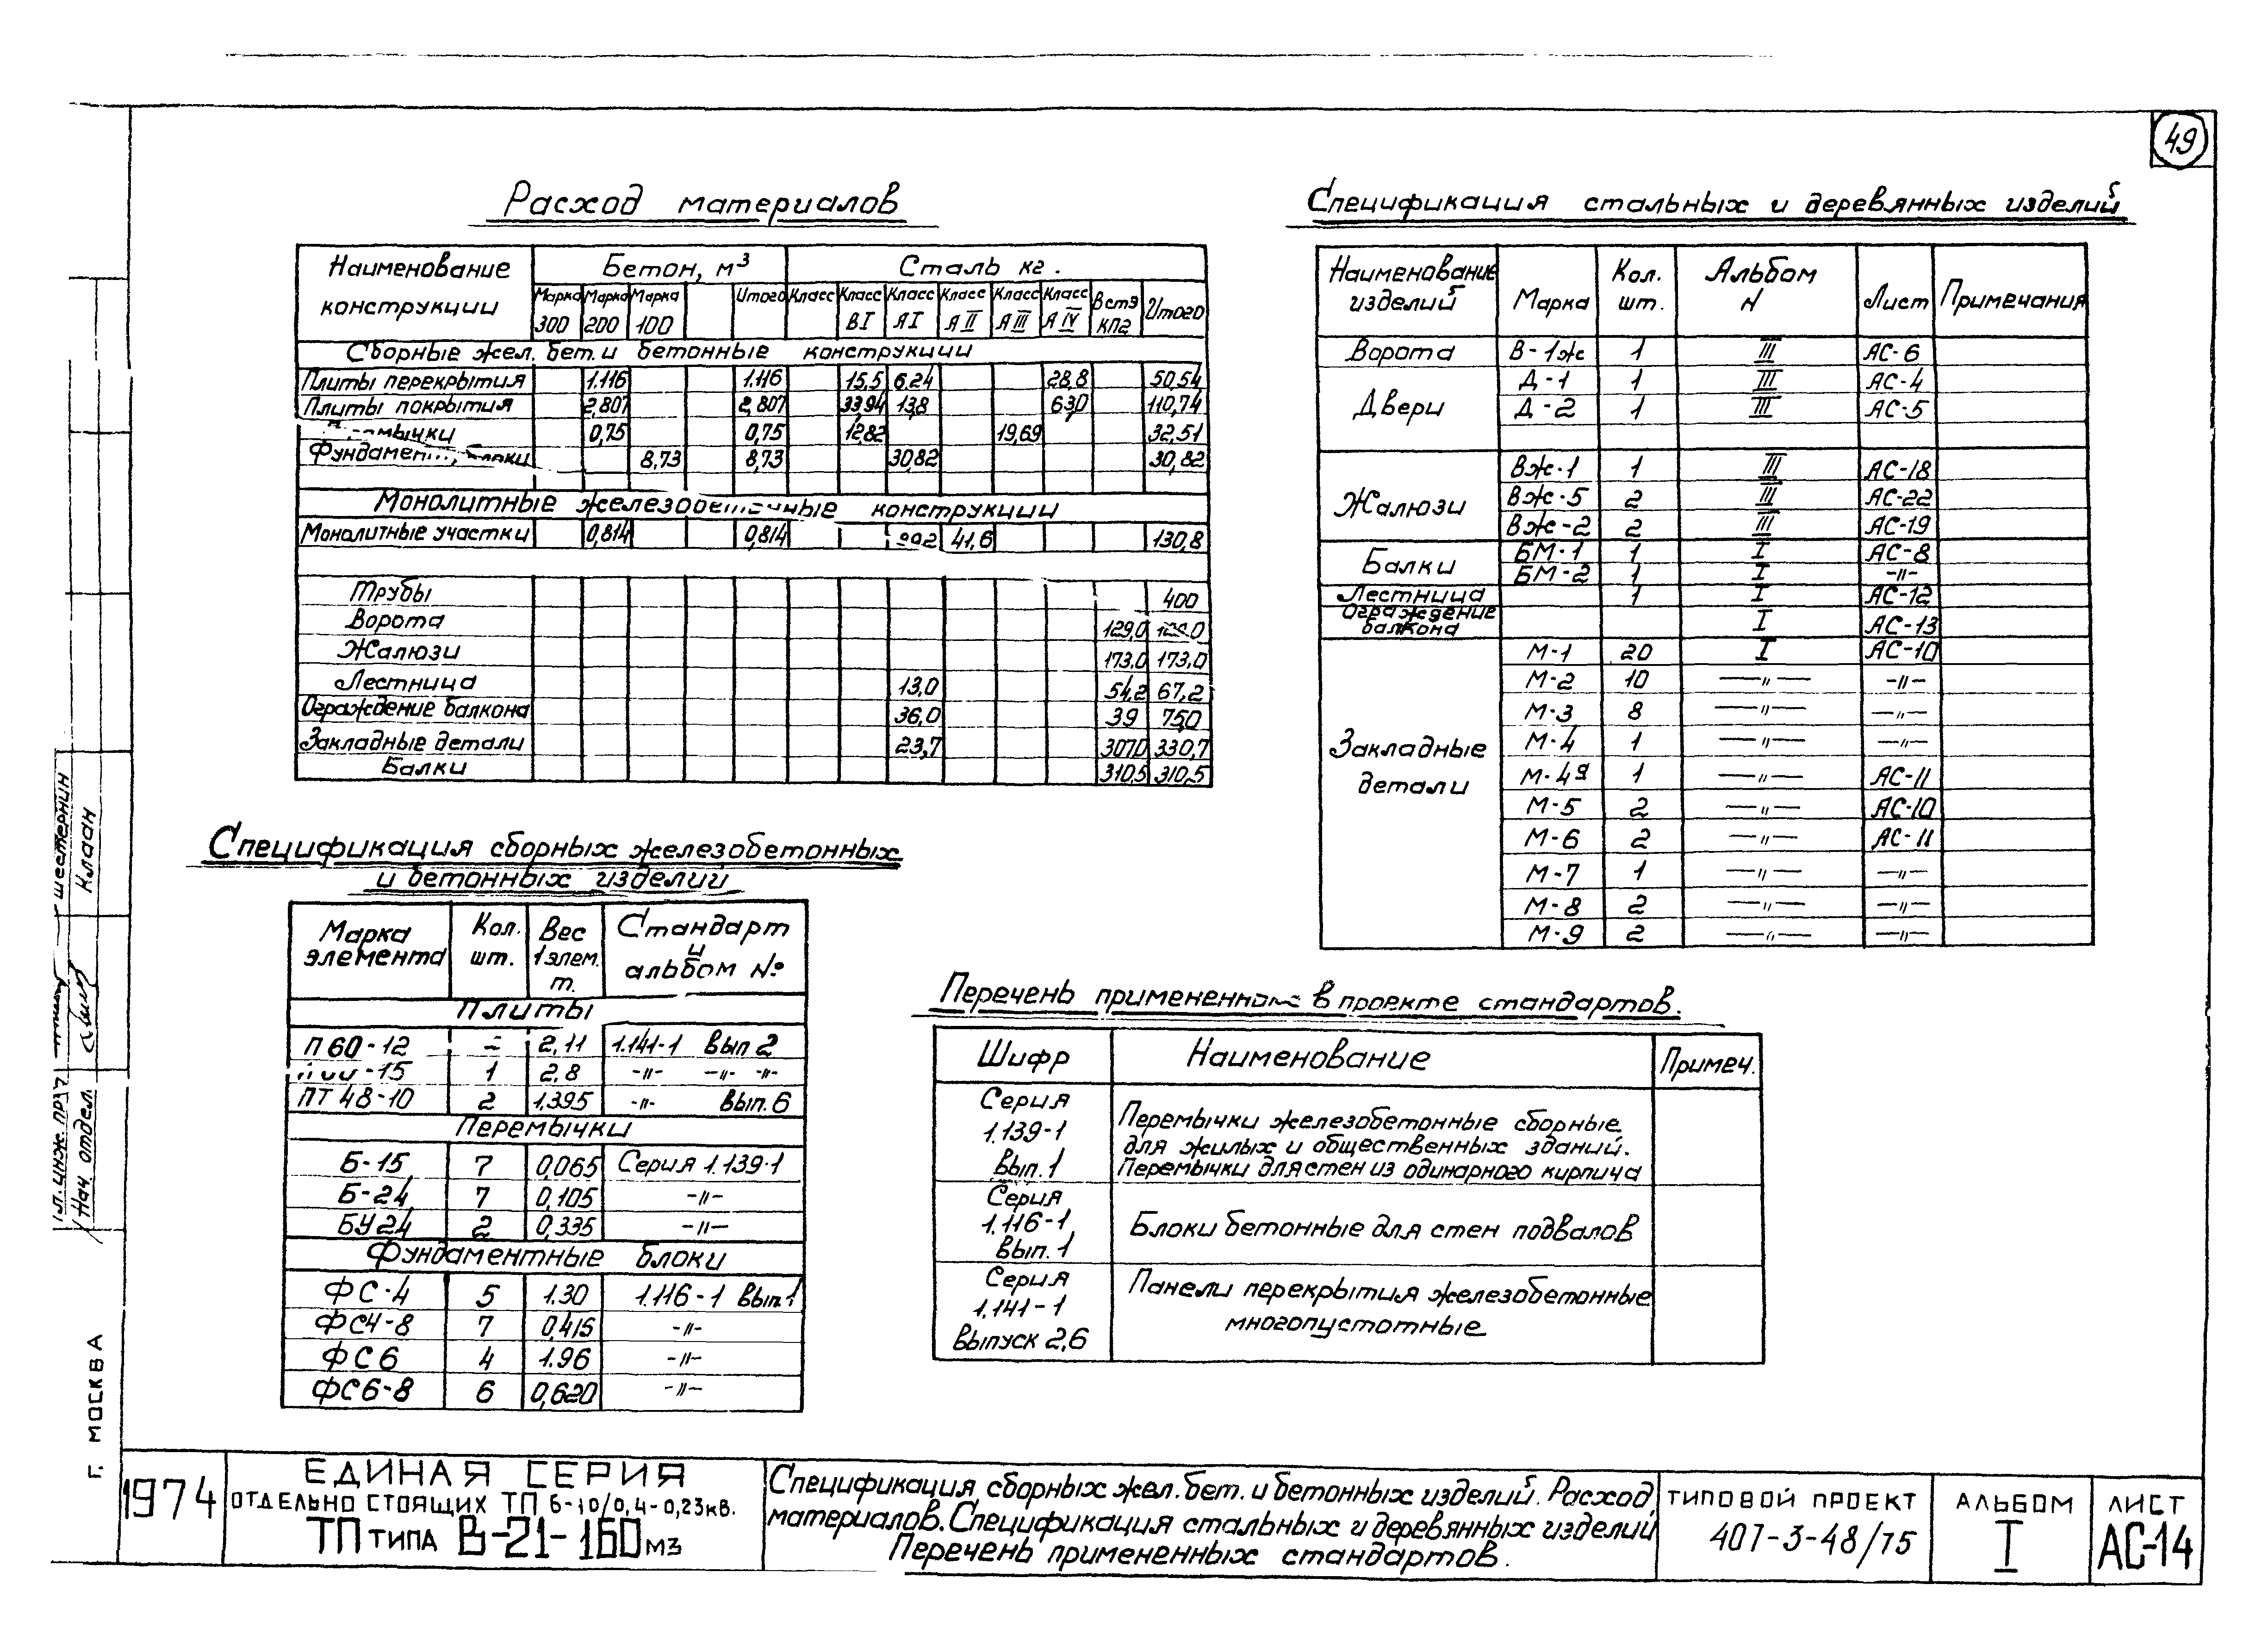 49
Расход материалов
Наименование конструкции | Бетон, м³ | Сталь кг.
Марка 300 | Марка 200 | Марка 100 | Итого | Класс | Класс ВI | Класс АI | Класс АII | Класс АIII | Класс АIV | Вст3 кп2 | Итого
Сборные жел. бет. и бетонные конструкции
Плиты перекрытия 1.116 1.116 15,5 6.24 28,8 50,54
Плиты покрытия 2,807 2,807 33.94 13,8 63,0 110,74
0,75 0,75 12,82 19,69 32,51
Фундамент. блоки 8,73 8,73 30,82 30,82
Монолитные железобетонные конструкции
Монолитные участки 0,814 0,814 41,6 130,8
Трубы 400
Ворота 129,0
Жалюзи 173,0 173,0
Лестница 13,0 54,2 67,2
Ограждение балкона 36,0 39 75,0
Закладные детали 23,7 307,0 330,7
Балки 310,5 310,5
Спецификация сборных железобетонных
и бетонных изделий
Марка элемента | Кол. шт. | Вес 1 элем. т. | Стандарт и альбом №
Плиты
П 60-12 2,11 1.141-1 Вып 2
-15 1 2,8 -"- -"- -"-
ПТ 48-10 2 1,395 -"- вып. 6
Перемычки
Б-15 7 0,065 Серия 1.139-1
Б-24 7 0,105 -"-
БУ24 2 0,335 -"-
Фундаментные блоки
ФС-4 5 1.30 1.116-1 вып. 1
ФС4-8 7 0,415 -"-
ФС6 4 1.96 -"-
ФС6-8 6 0,620 -"-
Спецификация стальных и деревянных изделий
Наименование изделий | Марка | Кол. шт. | Альбом N | Лист | Примечания
Ворота В-1ж 1 III АС-6
Двери Д-1 1 III АС-4
Д-2 1 III АС-5
Жалюзи ВЖ-1 1 III АС-18
ВЖ-5 2 III АС-22
ВЖ-2 2 III АС-19
Балки БМ-1 1 I АС-8
БМ-2 1 I -"-
Лестница 1 I АС-12
Ограждение балкона I АС-13
Закладные детали М-1 20 I АС-10
М-2 10 -"- -"-
М-3 8 -"- -"-
М-4 1 -"- -"-
М-4а 1 -"- АС-11
М-5 2 -"- АС-10
М-6 2 -"- АС-11
М-7 1 -"- -"-
М-8 2 -"- -"-
М-9 2 -"- -"-
Перечень примененных в проекте стандартов.
Шифр | Наименование | Примеч.
Серия 1.139-1 Вып. 1
Перемычки железобетонные сборные
для жилых и общественных зданий.
Перемычки для стен из одинарного кирпича
Серия 1.116-1 Вып. 1
Блоки бетонные для стен подвалов
Серия 1.141-1 Выпуск 2,6
Панели перекрытия железобетонные
многопустотные
Шестернин
Клаан
Гл. инж. пр.
Нач. отдел.
г. МОСКВА
1974
ЕДИНАЯ СЕРИЯ
ОТДЕЛЬНО СТОЯЩИХ ТП 6-10/0,4-0,23кв.
ТП ТИПА В-21-160 М3
Спецификация сборных жел. бет. и бетонных изделий. Расход
материалов. Спецификация стальных и деревянных изделий
Перечень примененных стандартов.
ТИПОВОЙ ПРОЕКТ
407-3-48/75
АЛЬБОМ
I
ЛИСТ
АС-14